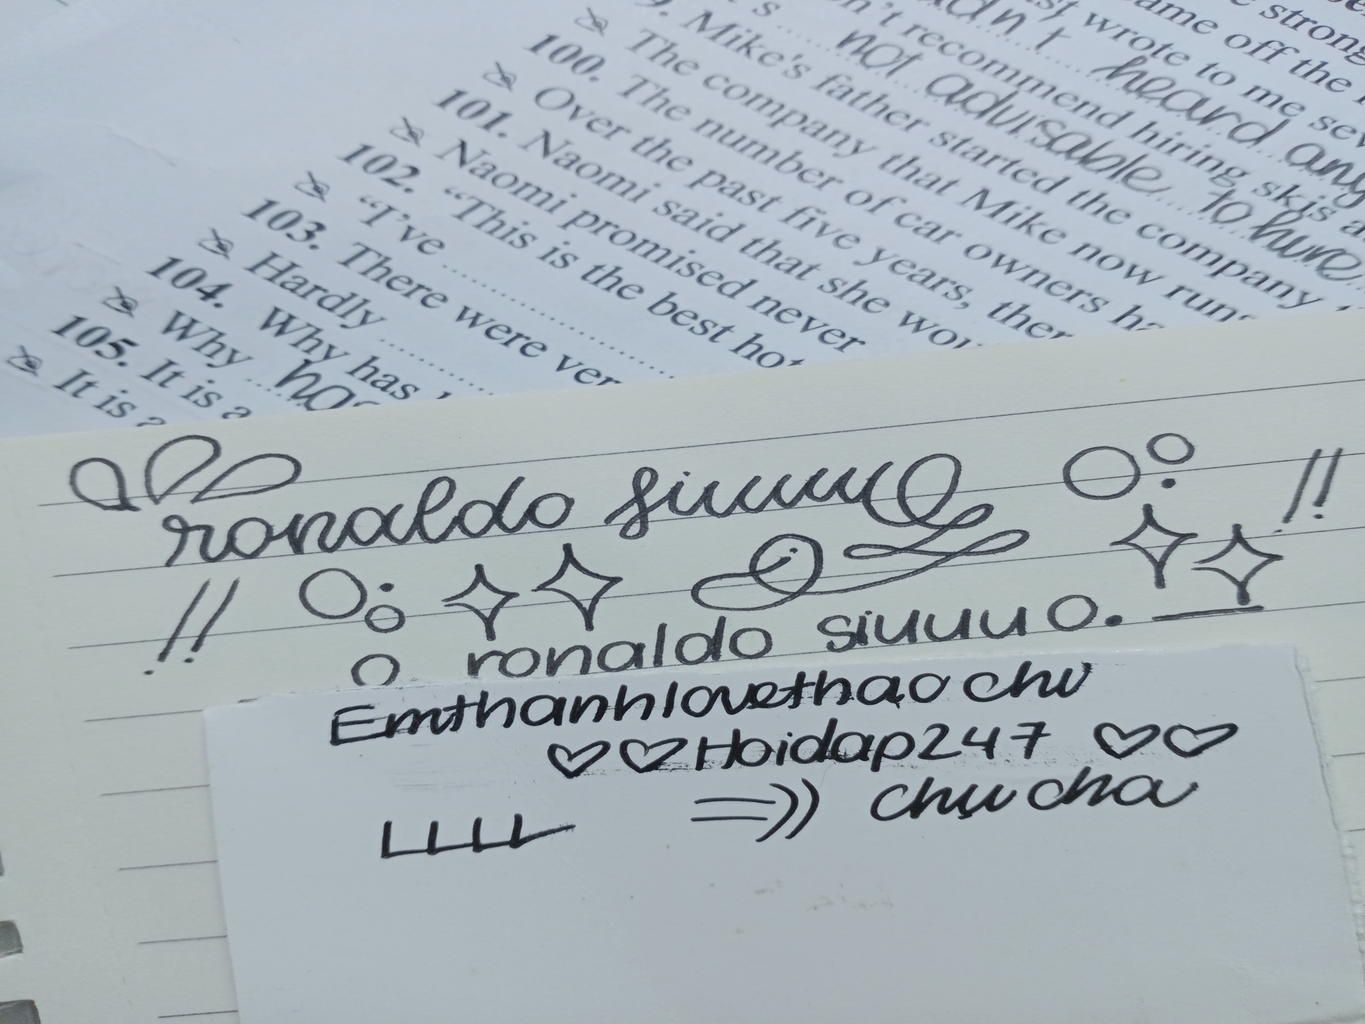 wrote to me
came off the
strong
n't recommend hiring skis a
heard any
not advisable to hire
9. Mike's father started the company
The company that Mike now runs
100. The number of car owners ha
Over the past five years, ther
101. Naomi said that she wou
Naomi promised never
102. “This is the best hot
“I’ve ..........
103. There were ver
Hardly ..........
104. Why has
Why ..... has
105. It is a
It is a
ronaldo siuuuu
!!
!!
ronaldo siuuuu o.
Emthanhlovethao chu
♡♡Hoidap247 ♡♡
=)) chu cha